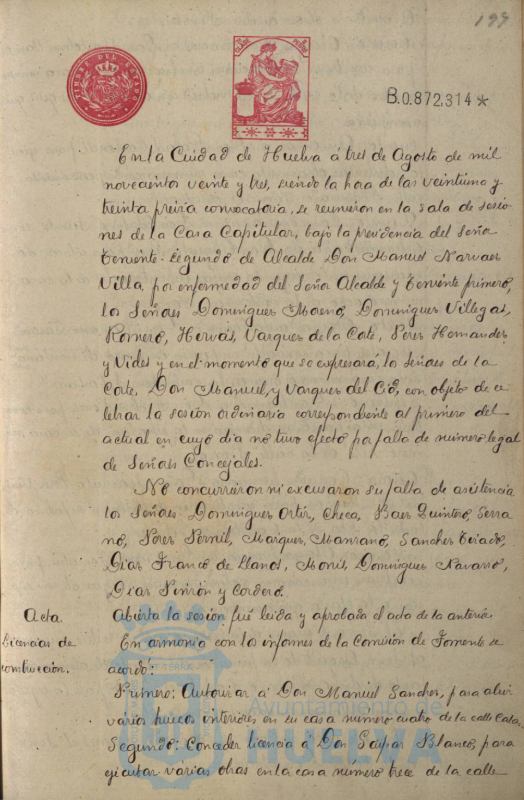 199
TIMBRE DEL ESTADO
B.0.872.314*
En la Ciudad de Huelva á tres de Agosto de mil
novecientos veinte y tres, siendo la hora de las veintiuna y
treinta previa convocatoria, se reunieron en la sala de sesio
nes de la Casa Capitular, bajo la presidencia del Señor
Teniente Segundo de Alcalde Don Manuel Narvaez
Villa, por enfermedad del Señor Alcalde y Teniente primero,
los Señores Dominguez Moreno, Dominguez Villegas,
Romero, Hervás, Vazquez de la Corte, Perez Hernandez
y Vides y en el momento que se expresará, los señores de la
Corte, Don Manuel, y Vazquez del Cid, con objeto de ce
lebrar la sesión ordinaria correspondiente al primero del
actual en cuyo dia no tuvo efecto por falta de numero legal
de Señores Concejales.
No concurrieron ni excusaron su falta de asistencia
los Señores Dominguez Ortiz, Checa, Baez Quintero, Serra
no, Perez Pernil, Marquez, Manzano, Sanchez Tirado,
Diaz Franco de Llanos, Monis, Dominguez Navarro,
Diaz Pinzón y Cordero.
Acta.
Abierta la sesión fué leida y aprobada el acta de la anterior.
Licencias de
construcción.
En armonia con los informes de la Comisión de Fomento se
acordó:
Primero: Autorizar á Don Manuel Sanchez, para abrir
varios huecos interiores en su casa número cuatro de la calle
Segundo: Conceder licencia á Don Gaspar Blanco, para
ejecutar várias obras en la casa número trece de la calle
Ayuntamiento de
HUELVA